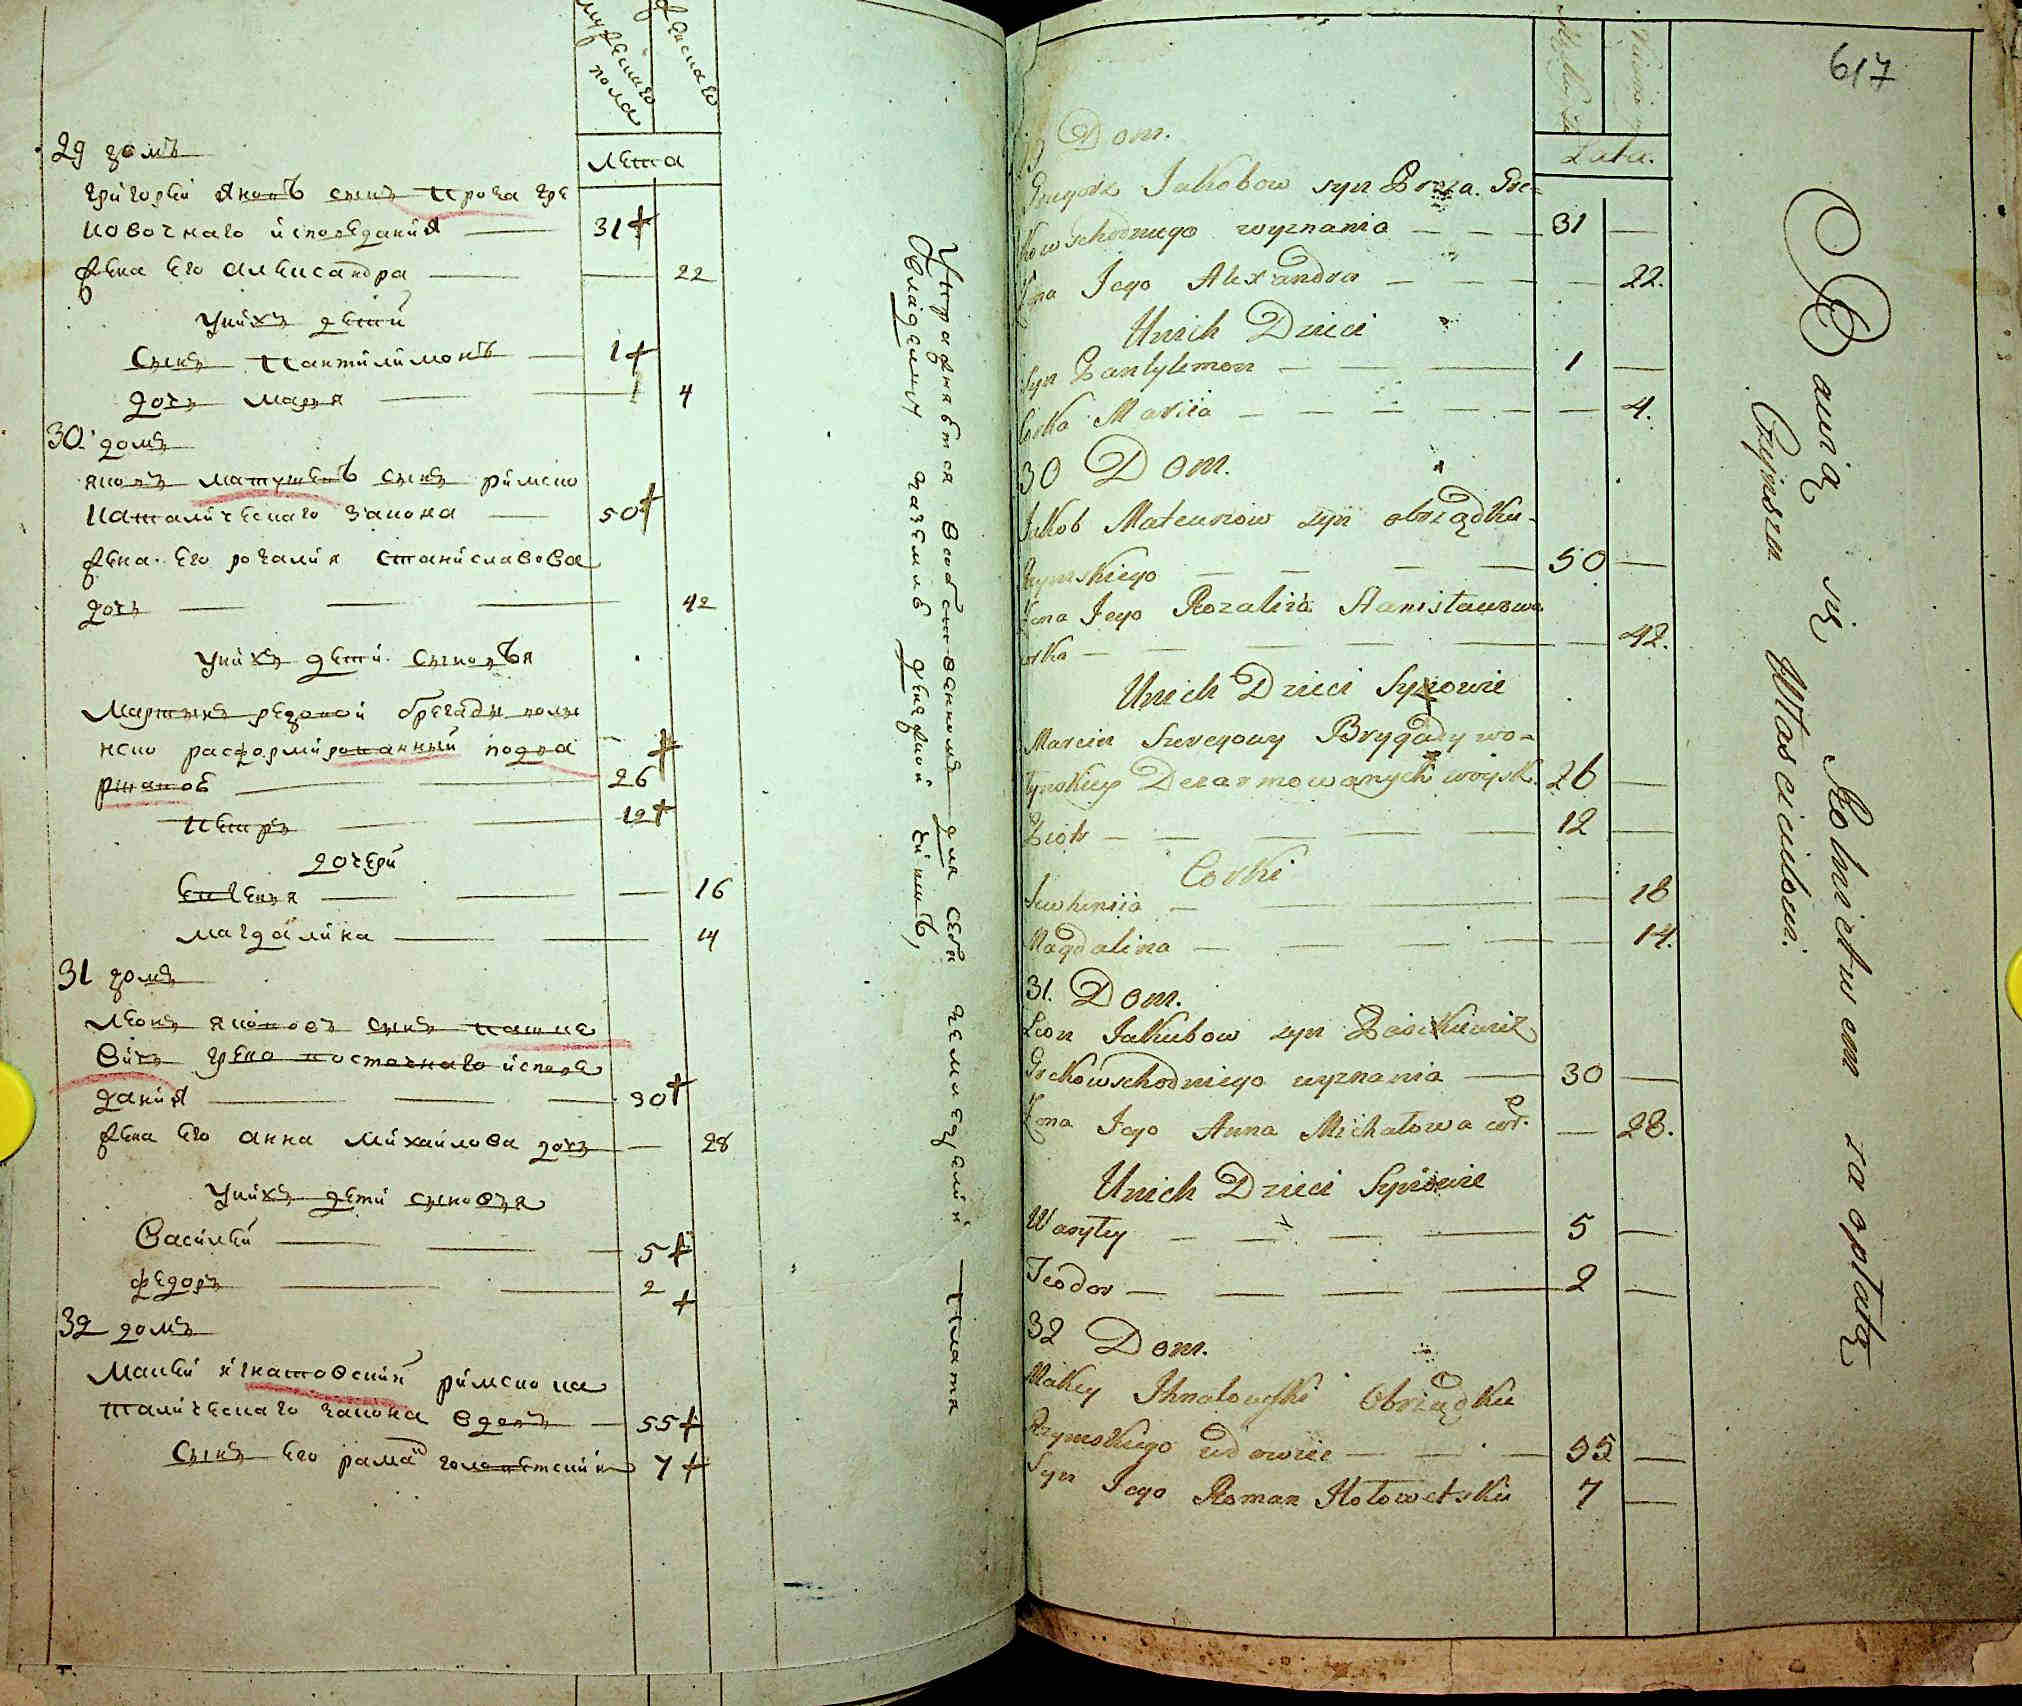 мужеского пола
женского
лета
29 домъ
григорей яковъ сынъ Прока гре
ковосчнаго исповедания — 31
жена его александра — 22
у нихъ дети
сынъ Пантилимонъ — 1
дочь марья — 4
30 домъ
яковъ матушевъ сынъ римско
католическаго закона — 50
жена его розалия станиславова
дочь — 42
у нихъ дети сыновья
Мартынъ бригады волы
нско расформированный
26
Петръ — 12
дочери
евгения — 16
магдалина — 14
31 домъ
леонъ яковъ сынъ пашке
вичъ греко восточнаго испове
дания — 30
жена его анна михайлова дочь — 28
у нихъ дети сыновья
Василей — 5
федоръ — 2
32 домъ
Макей игнатовский римско ка
толическаго закона вдовъ — 55
сынъ его рама головетский 7
Упражняются в собственномъ для себя земледелии плата
владелцу за землю денежной чиншъ,
617
Latu.
Dom.
Gregorz Jakobow syn Proza. Gre-
kowschodniego wyznania — 31 —
Żona Jego Alexandra — 22.
Unich Dzieci
Syn Pantylemon — 1 —
Corka Mariia — 4.
30 Dom.
Jakob Mateuszow syn obrządku
Rzymskiego — 50 —
Żona Jego Rozaliia Stanisławowa
corka — 42.
Unich Dzieci Synowie
Marcin Szeregowy Brygady wo-
łynskiey Dezarmowanych woysk. 26 —
Piotr — 12 —
Corki
Jewheniia — 18
Magdalina — 14.
31. Dom.
Leon Jakubow syn Paszkiewicz
Grekowschodniego wyznania — 30 —
Żona Jego Anna Michałowa cor. — 28.
Unich Dzieci Synowie
Wasyley — 5 —
Teodor — 2 —
32 Dom.
Makey Ihnatowski Obrządku
Rzymskiego wdowiec — 55 —
Syn Jego Roman Hołowetski 7 —
Bawią się Rolnictwem za opłatą
Czynszu Własciicielowi.